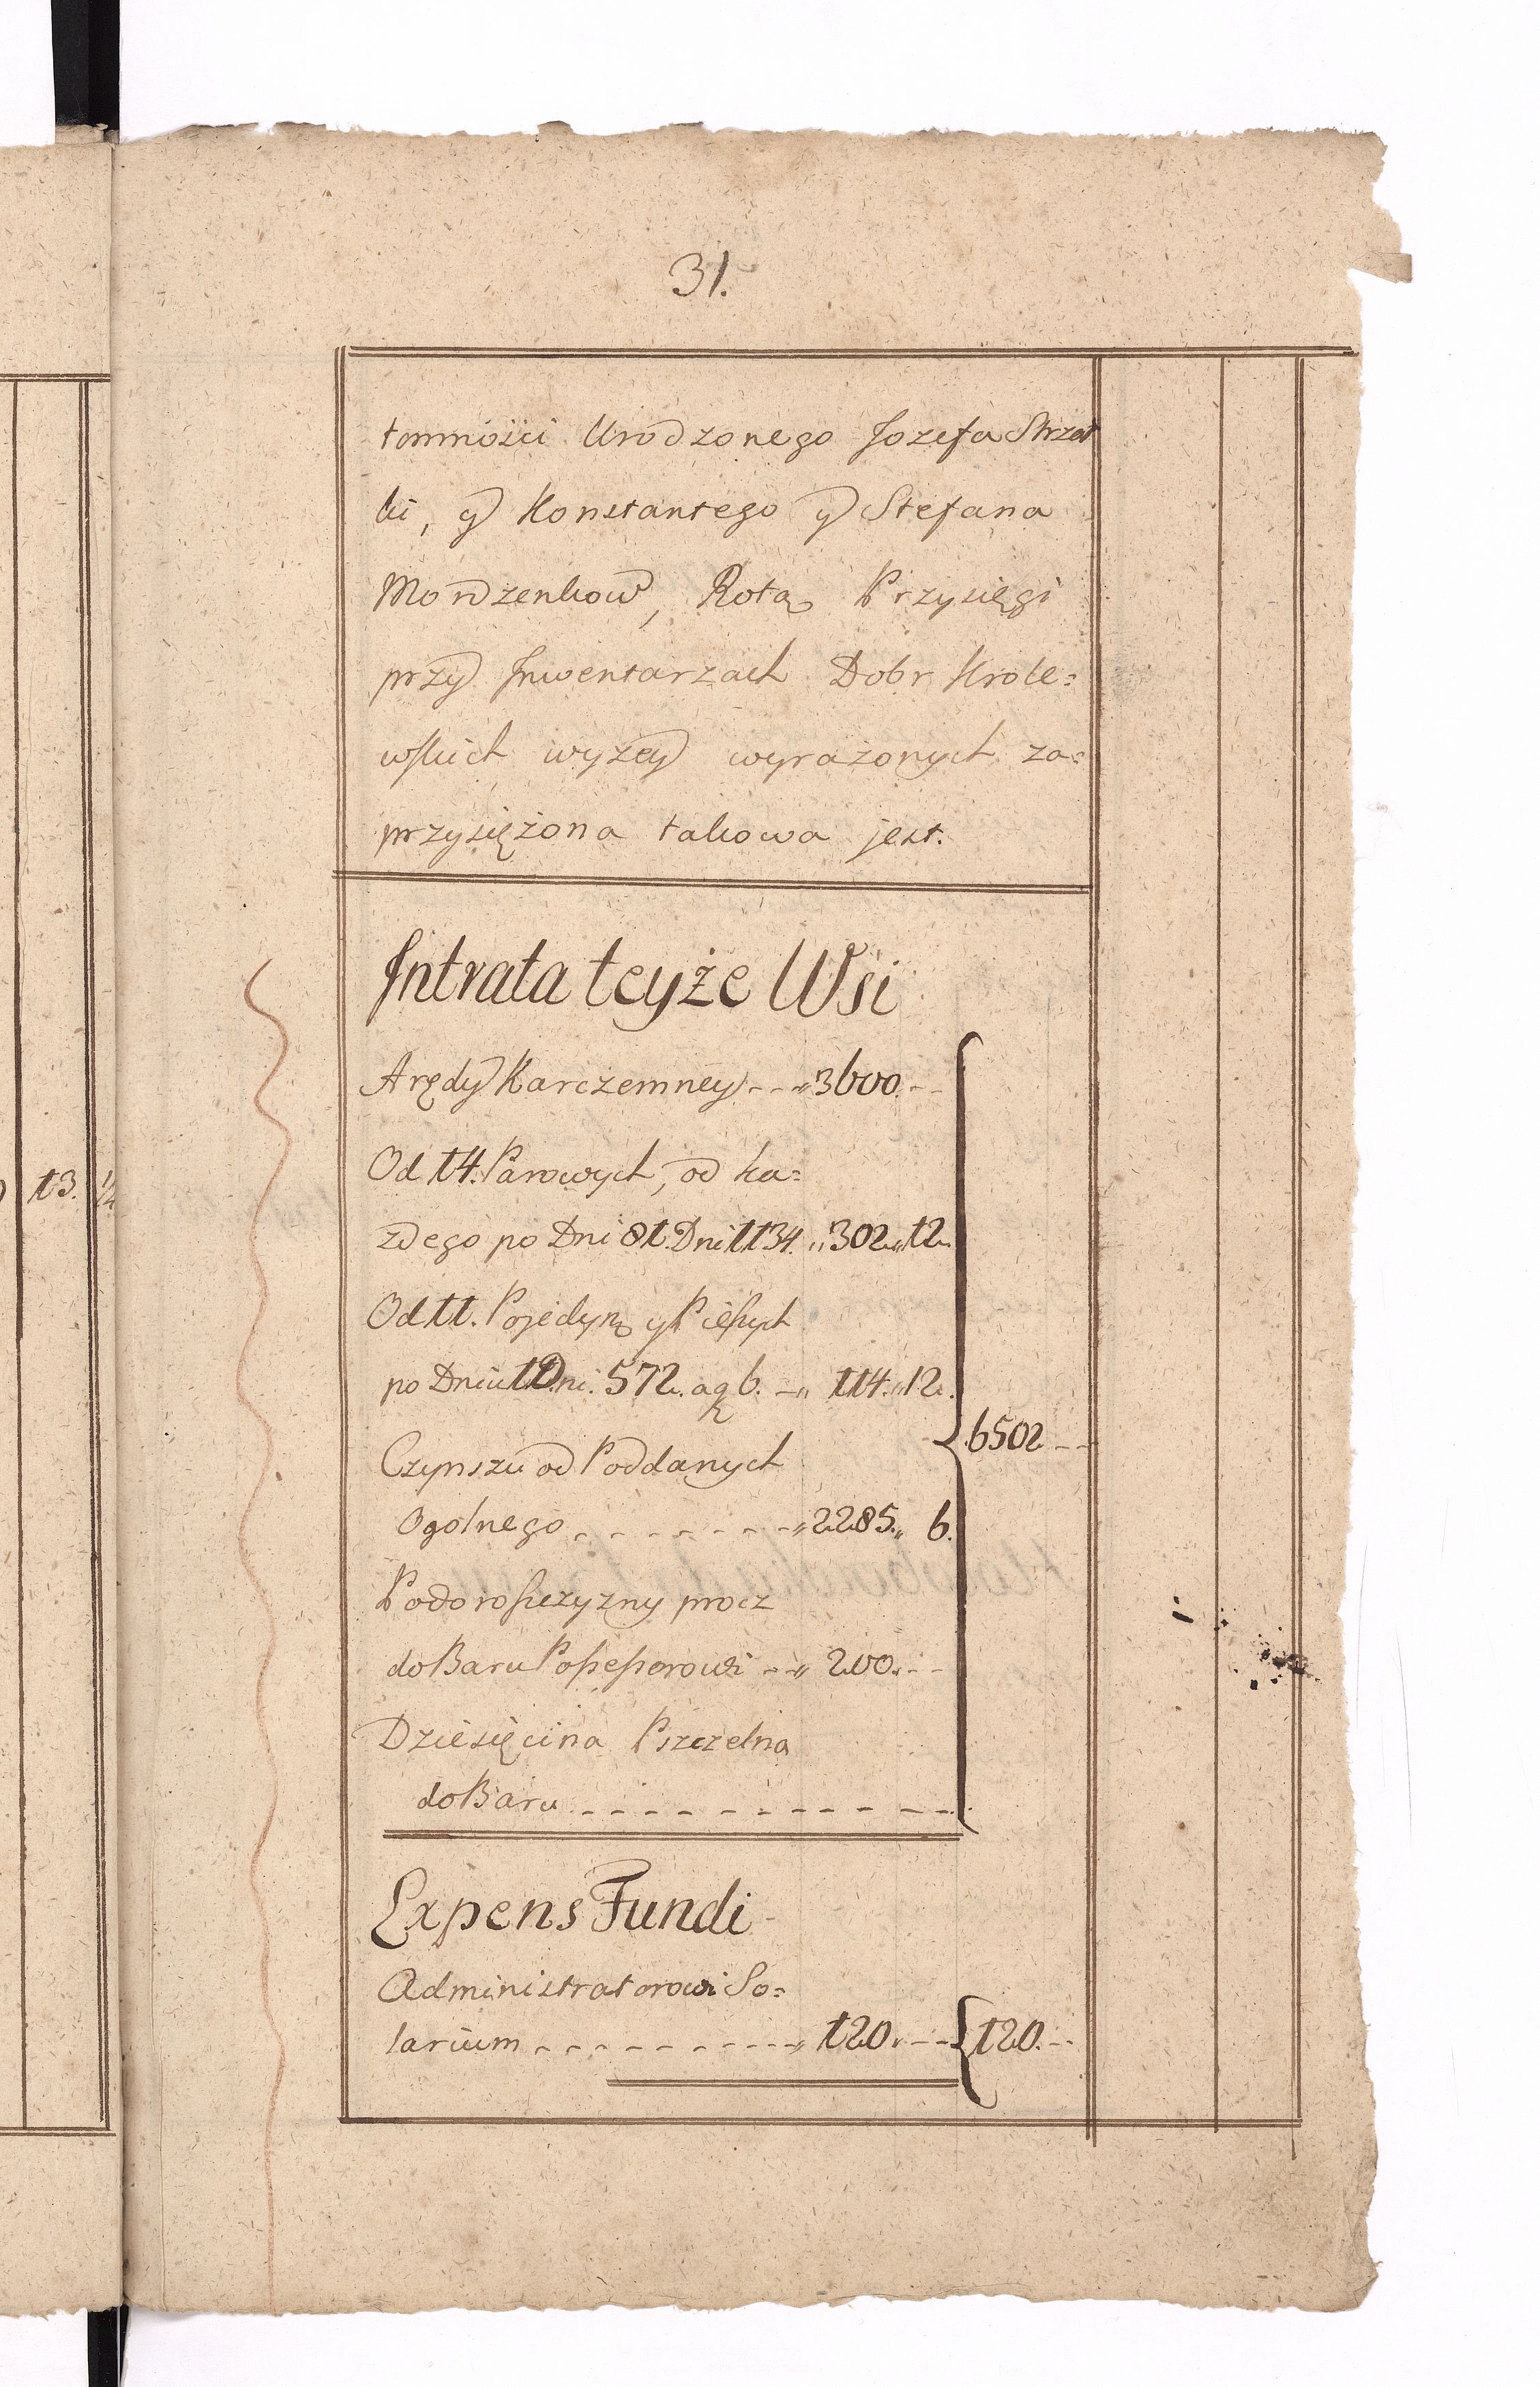 31.
tomności Urodzonego Jozefa Strzał
ki, y Konstantego y Stefana
Mordzenkow, Rotą Przysięgi
przy Inwentarzach Dobr Krole=
wskich wyżey wyrażonych za=
przysiężona takowa jest.
Intrata teyże Wsi
Arędy Karczemney - - „ 3600. - -
Od 14. Parowych, od ka=
zdego po Dni 81. Dni 1134. „ 302 „ 12.
Od 11. Pojedyn: y Pieszych
po Dni 52. Dni. 572. a g 6. - „ 114. „ 12.
Czynszu od Poddanych
Ogolnego - - - - - - - „ 2285. „ 6.
Podoroszczyzny procz
do Baru Possessorowi - - „ 200. - -
Dziesięcina Pszczelna
do Baru - - - - - - - - - - -
6502 - -
Expens Fundi
Administratorowi So=
larium - - - - - - - - - „ 120. - - 120. - -
13. 1/4